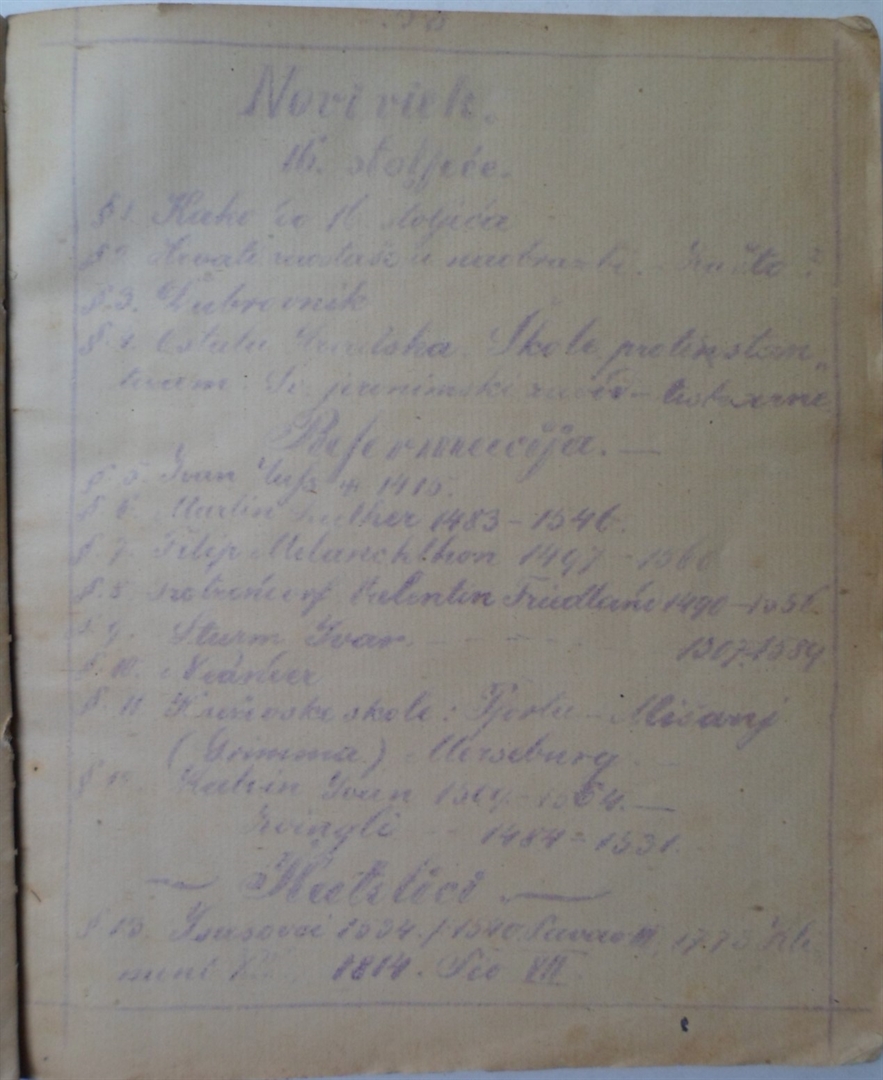 Novi viek.
16. stoljeće.
§ 1. Kako do 16. stoljeća
§ 2. Hrvati zaostaše u naobrazbi. – Zašto?
§. 3. Dubrovnik
§. 4. Ostala Hrvatska. Škole protestan-
tizam. Sv.
Reformacija. —
§. 5. Ivan Huss + 1415.
§ 6. Martin Luther 1483 – 1546.
§. 7. Filip Melanchthon 1497 – 1560
§. 8. Valentin Friedland 1490 – 1556.
§ 9. Sturm Ivan. 1507-1589
§. 10. Neander
§. 11 škole: Pforta – Mišanj
(Grimma) Merseburg. —
§ 12. Kalvin Ivan 1509-1564. —
Zvingli – 1484 – 1531.
— Katolici —
§ 13. Isusovci 1534. / 1540. Pavao III. 1773 Kli-
ment 1814. Pio VII.